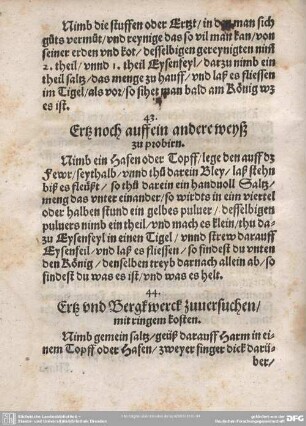 Nimb die stuffen oder Ertzt/ in den man sich
güts vermüt/ vnd reynige das so vil man kan/ von
seiner erden vnd kot/ desselbigen gereynigten nim
2. theil/ vnnd 1. theil Eysenfeyl/ darzu nimb ein
theil saltz/ das menge zu hauff/ vnd laß es fliessen
im Tigel/ als vor/ so sihet man bald am König wz
es ist.
43.
Ertz noch auff ein andere weyß
zu probirn.
Nimb ein Hafen oder Topff/ lege den auff dz
Fewr/ seythalb/ vnnd thü darein Bley/ laß stehn
biß es fleüßt/ so thü darein ein handuoll Saltz/
meng das vnter einander/ so wirdts in eim viertel
oder halben stund ein gelbes puluer/ desselbigen
puluers nimb ein theil/ vnd mach es klein/ thu da-
zu Eysenfeyl in einen Tigel/ vnnd strew darauff
Eysenfeil/ vnd laß es fliessen/ so findest du vnten
den König/ denselben treyb darnach allein ab/ so
findest du was es ist/ vnd was es helt.
44.
Ertz vnd Bergkwerck zuuersuchen/
mit ringem kosten.
Nimb gemein saltz/ geüß darauff Harm in ei-
nem Topff oder Hafen/ zweyer finger dick darü-
ber/